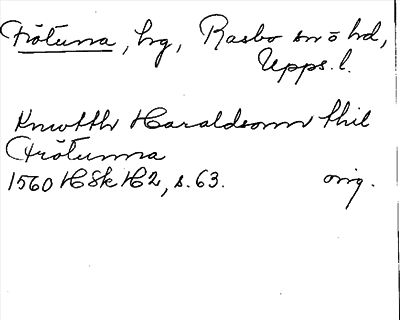 Frötuna, hg, Rasbo sn o hd,
Upps. l.
Knwtthr Haraldsonn thil
Frötunna
1560 HSk H2, s. 63. orig.